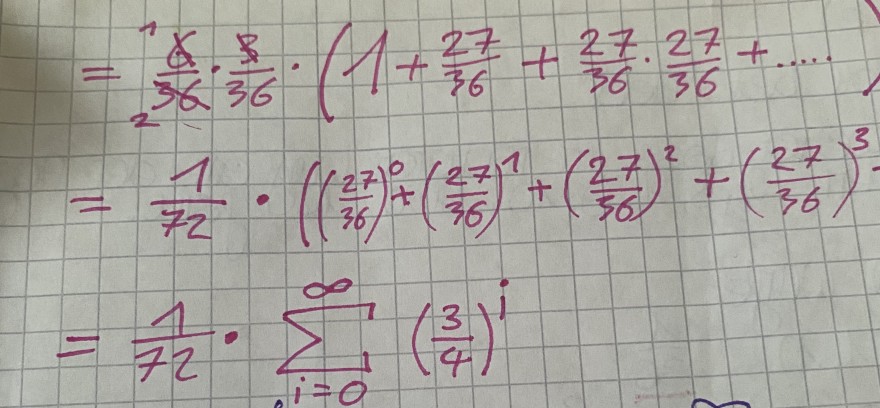 = 6/36 · 3/36 · (1 + 27/36 + 27/36 · 27/36 + .....)
= 1/72 · ((27/36)^0 + (27/36)^1 + (27/36)^2 + (27/36)^3
= 1/72 · ∑_{i=0}^{∞} (3/4)^i